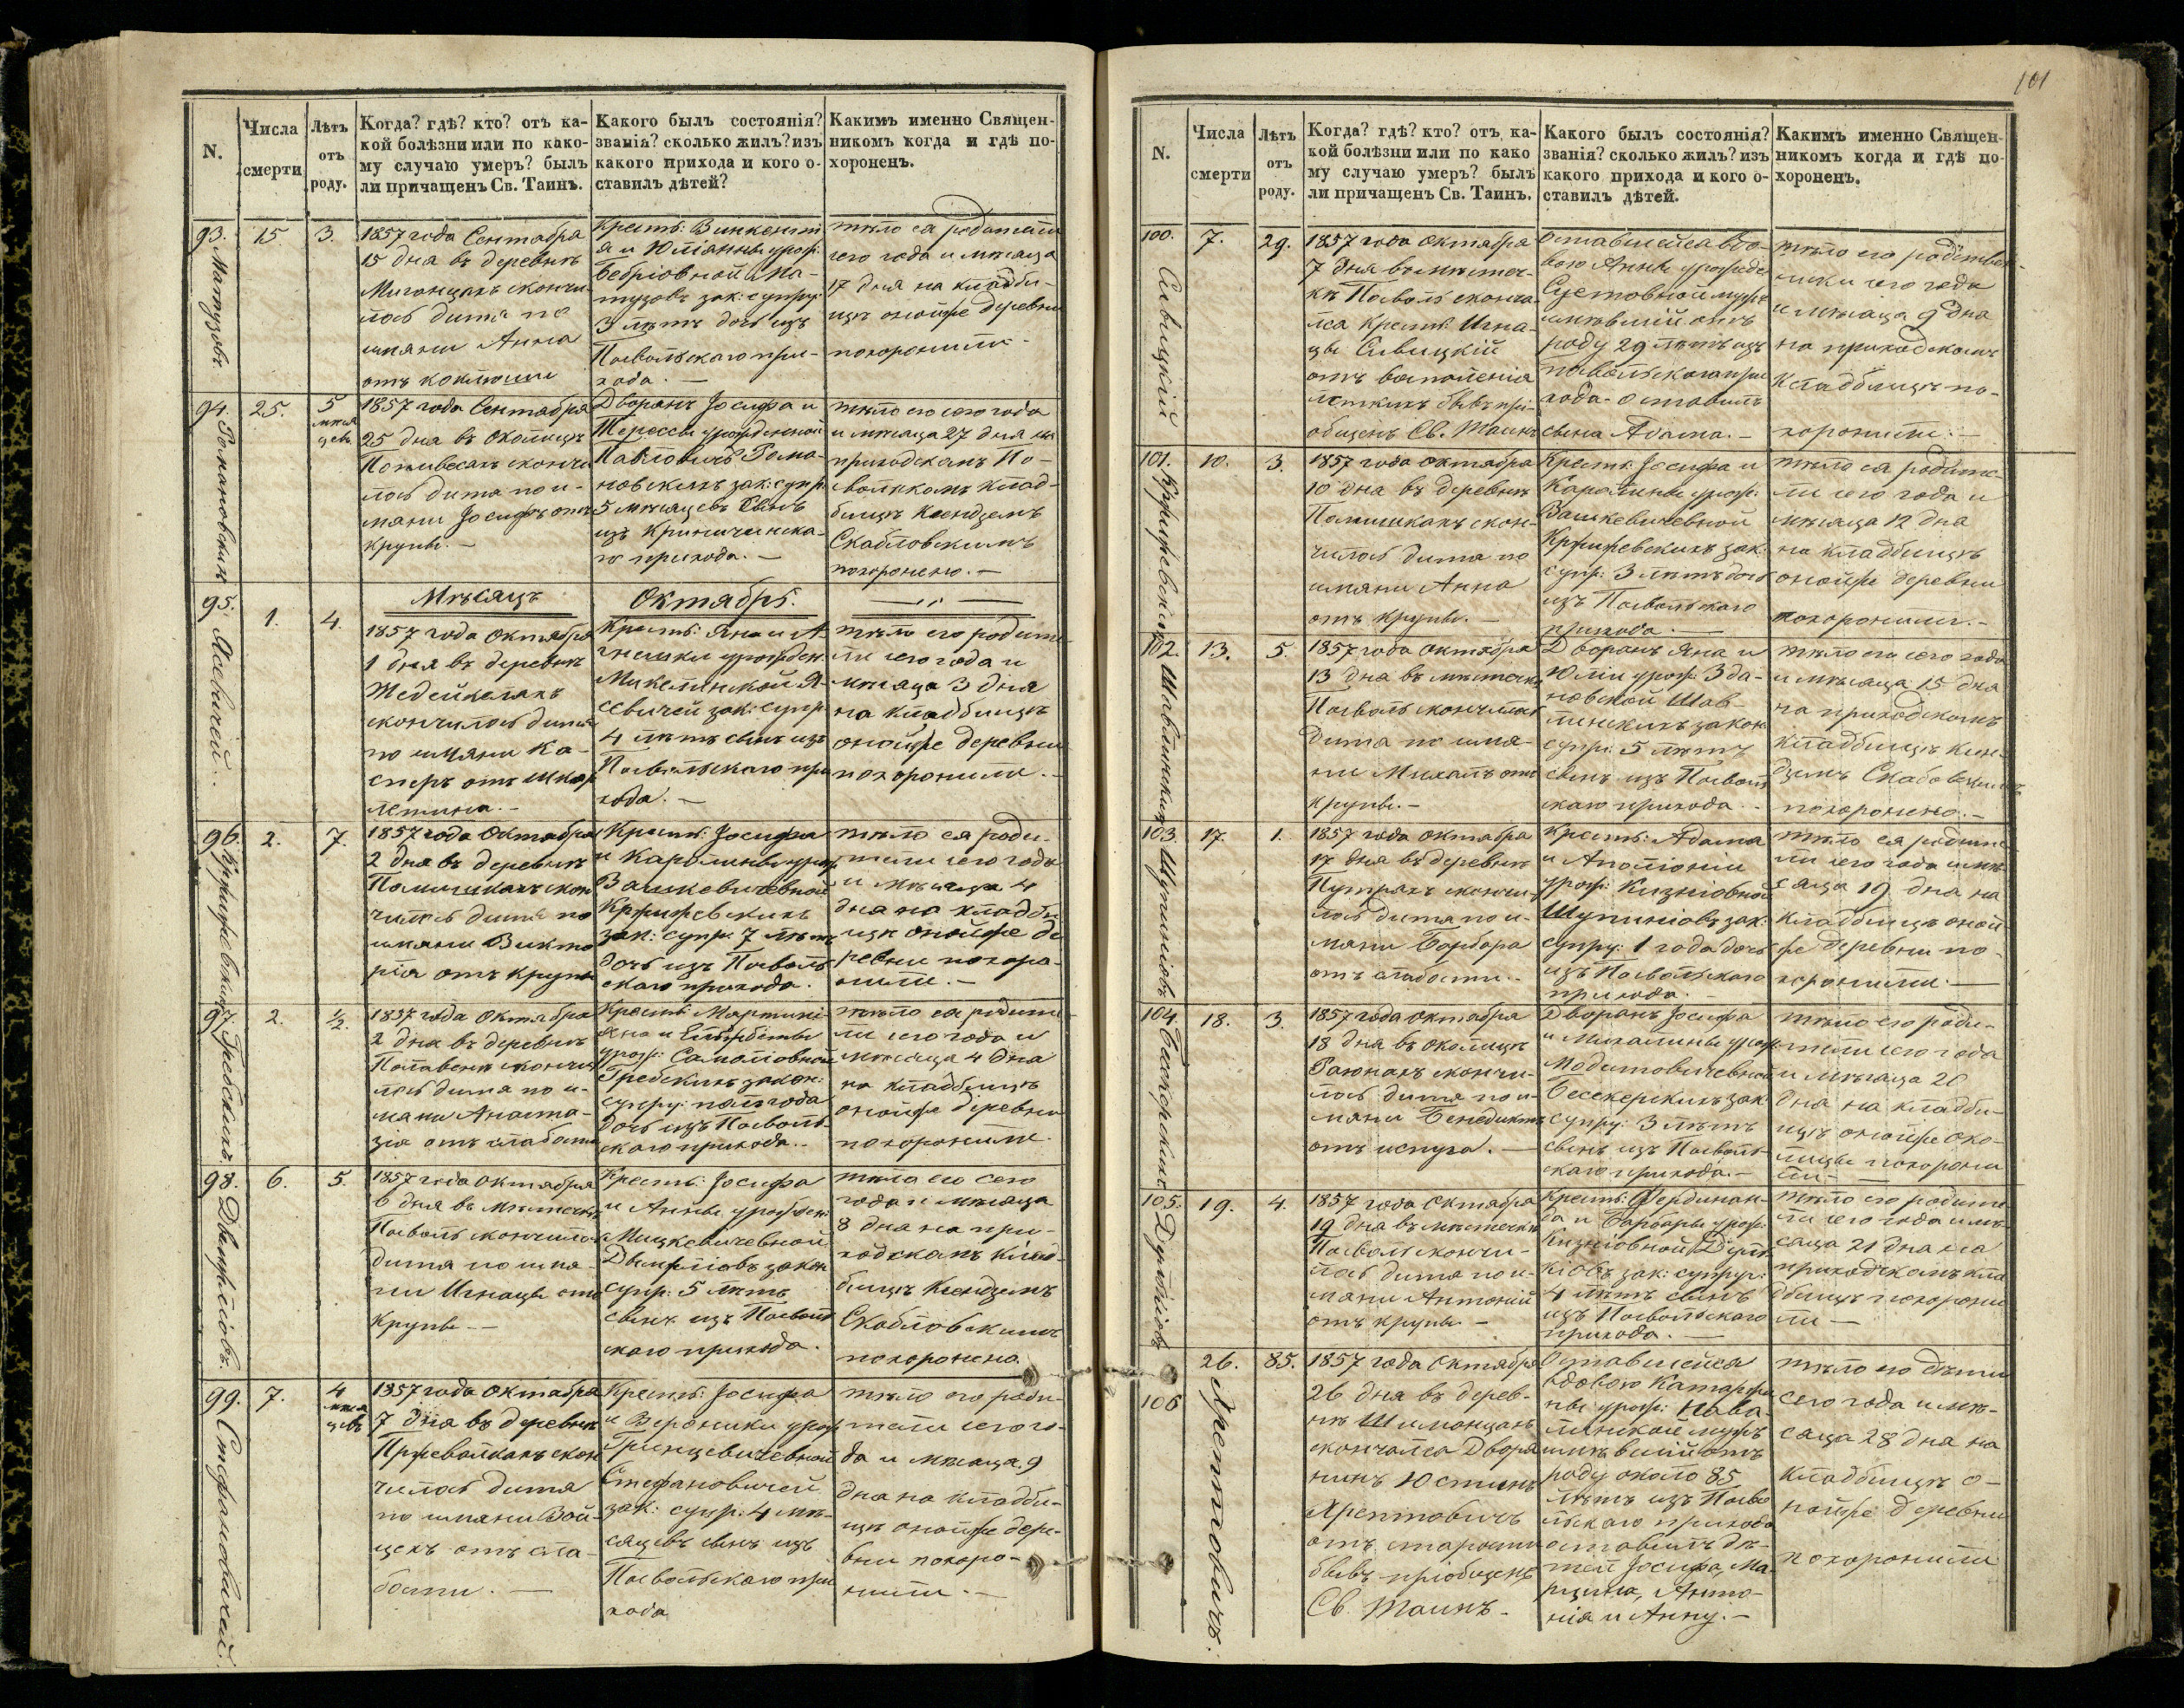 101
N.
Числа
смерти
Лѣтъ
отъ
роду.
Когда? гдѣ? кто? отъ ка-
кой болѣзни или по како-
му случаю умеръ? былъ
ли причащенъ Св. Таинъ.
Какого былъ состоянія?
званія? сколько жилъ? изъ
какого прихода и кого о-
ставилъ дѣтей?
Какимъ именно Священ-
никомъ когда и гдѣ по-
хороненъ.
93.
Матузовъ
15
3.
1857 года Сентября
15 дня въ деревнѣ
скончи
лось дитя по
имяни Анна
отъ коклюша
Крест: Винкент
я и Юліанны урож:
Ма-
тузовъ зак: супру:
3 лѣтъ дочь изъ
Посвольскаго при-
хода. —
тѣло ея родители
сего года и мѣсяца
17 дня на кладби-
щѣ онойже деревни
похоронили. —
94.
Романовскихъ
25.
5
мѣся
цевъ
1857 года Сентября
25 дня въ околицѣ
скончи
лось дитя по и-
мяни Іосифъ отъ
крупы. —
Дворянъ Іосифа и
Терессы урожденной
Рома-
новскихъ зак: супр:
5 мѣсяцевъ сынъ
изъ Криничинска-
го прихода. —
тѣло его сего года
и мѣсяца 27 дня на
приходскомъ По-
свольскомъ клад-
бищѣ Ксендземъ
Скабловскимъ
похоронено. —
Мѣсяцъ
Октябрь.
— „ —
95.
Ясевичей.
1.
4.
1857 года Октября
1 дня въ деревнѣ
Жедейкеляхъ
скончилось дитя
по имяни Ка-
сперъ отъ шкар
летина. —
Крест: Яна и А-
гнешки урожден:
Я-
севичей зак: супр:
4 лѣтъ сынъ изъ
Посвольскаго при
хода. —
тѣло его родите
ли сего года и
мѣсяца 3 дня
на кладбищѣ
онойже деревни
похоронили. —
96.
Кржижевскихъ
2.
7.
1857 года Октября
2 дня въ деревнѣ
Помишкахъ скон
чилось дитя по
имяни Викто
рія отъ крупы
Крест: Іосифа
и Каролины урож:
Вашкевичевной
Кржижевскихъ
зак: супр: 7 лѣтъ
дочь изъ Посволь
скаго прихода.
тѣло ея роди-
тели сего года
и мѣсяца 4
дня на кладби
щѣ онойже де
ревни похоро-
нили. —
97.
Гребскихъ
2.
½.
1857 года Октября
2 дня въ деревнѣ
скончи
лось дитя по и-
мяни Анаста-
зія отъ слабости
Крест: Мартині
яна и Ельжбѣты
урож: Самоліовной
Гребскихъ закон:
супру: полъ года
дочь изъ Посволь-
скаго прихода. —
тѣло ея родите
ли сего года и
мѣсяца 4 дня
на кладбищѣ
онойже деревни
похоронили.
98.
6.
5.
1857 года Октября
6 дня въ мѣстечкѣ
Посволь скончилось
дитя по имя-
ни Игнацы отъ
крупы —
Крест: Іосифа
и Анны урожден:
Мицкевичевной
закон
супр: 5 лѣтъ
сынъ изъ Посволь
скаго прихода.
тѣло его сего
года и мѣсяца
8 дня на при-
ходскомъ клад-
бищѣ Ксендземъ
Скабловскимъ
похоронено.
99.
Стефановичей.
7.
4
мѣся
цевъ
1857 года Октября
7 дня въ деревнѣ
скон
чилось дитя
по имяни Вой-
цехъ отъ сла-
бости. —
Крест: Іосифа
и Вероники урож:
Гринцевичевной
Стефановичей
зак: супр: 4 мѣ-
сяцевъ сынъ изъ
Посвольскаго при
хода
тѣло его роди-
тели сего го-
да и мѣсяца 9
дня на кладби-
щѣ онойже дере-
вни похоро-
нили. —
N.
Числа
смерти
Лѣтъ
отъ
роду.
Когда? гдѣ? кто? отъ ка-
кой болѣзни или по како
му случаю умеръ? былъ
ли причащенъ Св. Таинъ.
Какого былъ состоянія?
званія? сколько жилъ? изъ
какого прихода и кого о-
ставилъ дѣтей.
Какимъ именно Священ-
никомъ когда и гдѣ по-
хороненъ.
100.
Сивицкій
7.
29.
1857 года Октября
7 дня въ мѣстеч-
кѣ Посволь сконча-
лся крест: Игна-
цы Сивицкій
отъ воспаленія
легкихъ бывъ прі-
общенъ Св. Таинъ
Оставшейся вдо-
вою Анны урожде
мужъ
имѣвшій отъ
роду 29 лѣтъ изъ
Посвольскаго при
хода. Оставилъ
сына Адама. —
тѣло его родствен-
ники сего года
и мѣсяца 9 дня
на приходскомъ
кладбищѣ по-
хоронили. —
101.
Кржижевскихъ
10.
3.
1857 года Октября
10 дня въ деревнѣ
Помишкахъ скон-
чилось дитя по
имяни Анна
отъ крупы. —
Крест: Іосифа и
Каролины урож:
Вашкевичевной
Кржижевскихъ зак:
супр: 3 лѣтъ дочь
изъ Посвольскаго
прихода. —
тѣло ея родите-
ли сего года и
мѣсяца 12 дня
на кладбищѣ
онойже деревни
похоронили. —
102.
13.
5.
1857 года Октября
13 дня въ мѣстечкѣ
Посволь скончилось
дитя по имя-
ни Михалъ отъ
крупы. —
Дворянъ Яна и
Юліи урож: Зда-
новской Шав-
линскихъ закон:
супр: 5 лѣтъ
сынъ изъ Посволь
скаго прихода. —
тѣло его сего года
и мѣсяца 15 дня
на приходскомъ
кладбищѣ ксен-
дземъ
похоронено. —
103.
Шупиніовъ
17.
1.
1857 года Октября
17 дня въ деревнѣ
Путряхъ скончи-
лось дитя по и-
мяни Барбара
отъ слабости. —
Крест: Адама
и Аполіоніи
урож: Кизніовной
Шупиніовъ зак:
супру: 1 года дочь
изъ Посвольскаго
прихода. —
тѣло ея родите
ли сего года и мѣ-
сяца 19 дня на
кладбищѣ оной
же деревни по-
хоронили. —
104.
Бесекерскихъ
18.
3.
1857 года Октября
18 дня въ околицѣ
скончи-
лось дитя по и-
мяни Бенедиктъ
отъ испуга. —
Дворянъ Іосифа
и Михалины урож:
Бесекерскихъ зак:
супру: 3 лѣтъ
сынъ изъ Посволь
скаго прихода. —
тѣло его роди-
тели сего года
и мѣсяца 20
дня на кладби-
щѣ онойже око-
лицы похорони
ли —
105.
19.
4.
1857 года Октября
19 дня въ мѣстечкѣ
Посволь скончи-
лось дитя по и-
мяни Антоній
отъ крупы —
Крест: Фердинан-
да и Барбары урож:
Кизніовной
зак: супруг:
4 лѣтъ сынъ
изъ Посвольскаго
прихода. —
тѣло его родите
ли сего года и мѣ-
сяца 21 дня на
приходскомъ кла
дбищѣ похорони
ли —
106
Хрептовичъ.
26.
85.
1857 года Октября
26 дня въ дерев-
нѣ Шимонцахъ
скончался Дворя
нинъ Юстинъ
Хрептовичъ
отъ старости
бывъ пріобщенъ
Св. Таинъ. —
Оставшейся
вдовою Катаржи
ны урож:
мужъ
имѣвшій отъ
роду около 85
лѣтъ изъ Посво
льскаго прихода
оставилъ дѣ-
тей Іосифа, Ма-
рцина, Анто-
нія и Анну. —
тѣло его дѣти
сего года и мѣ-
сяца 28 дня на
кладбищѣ о-
нойже деревни
похоронили